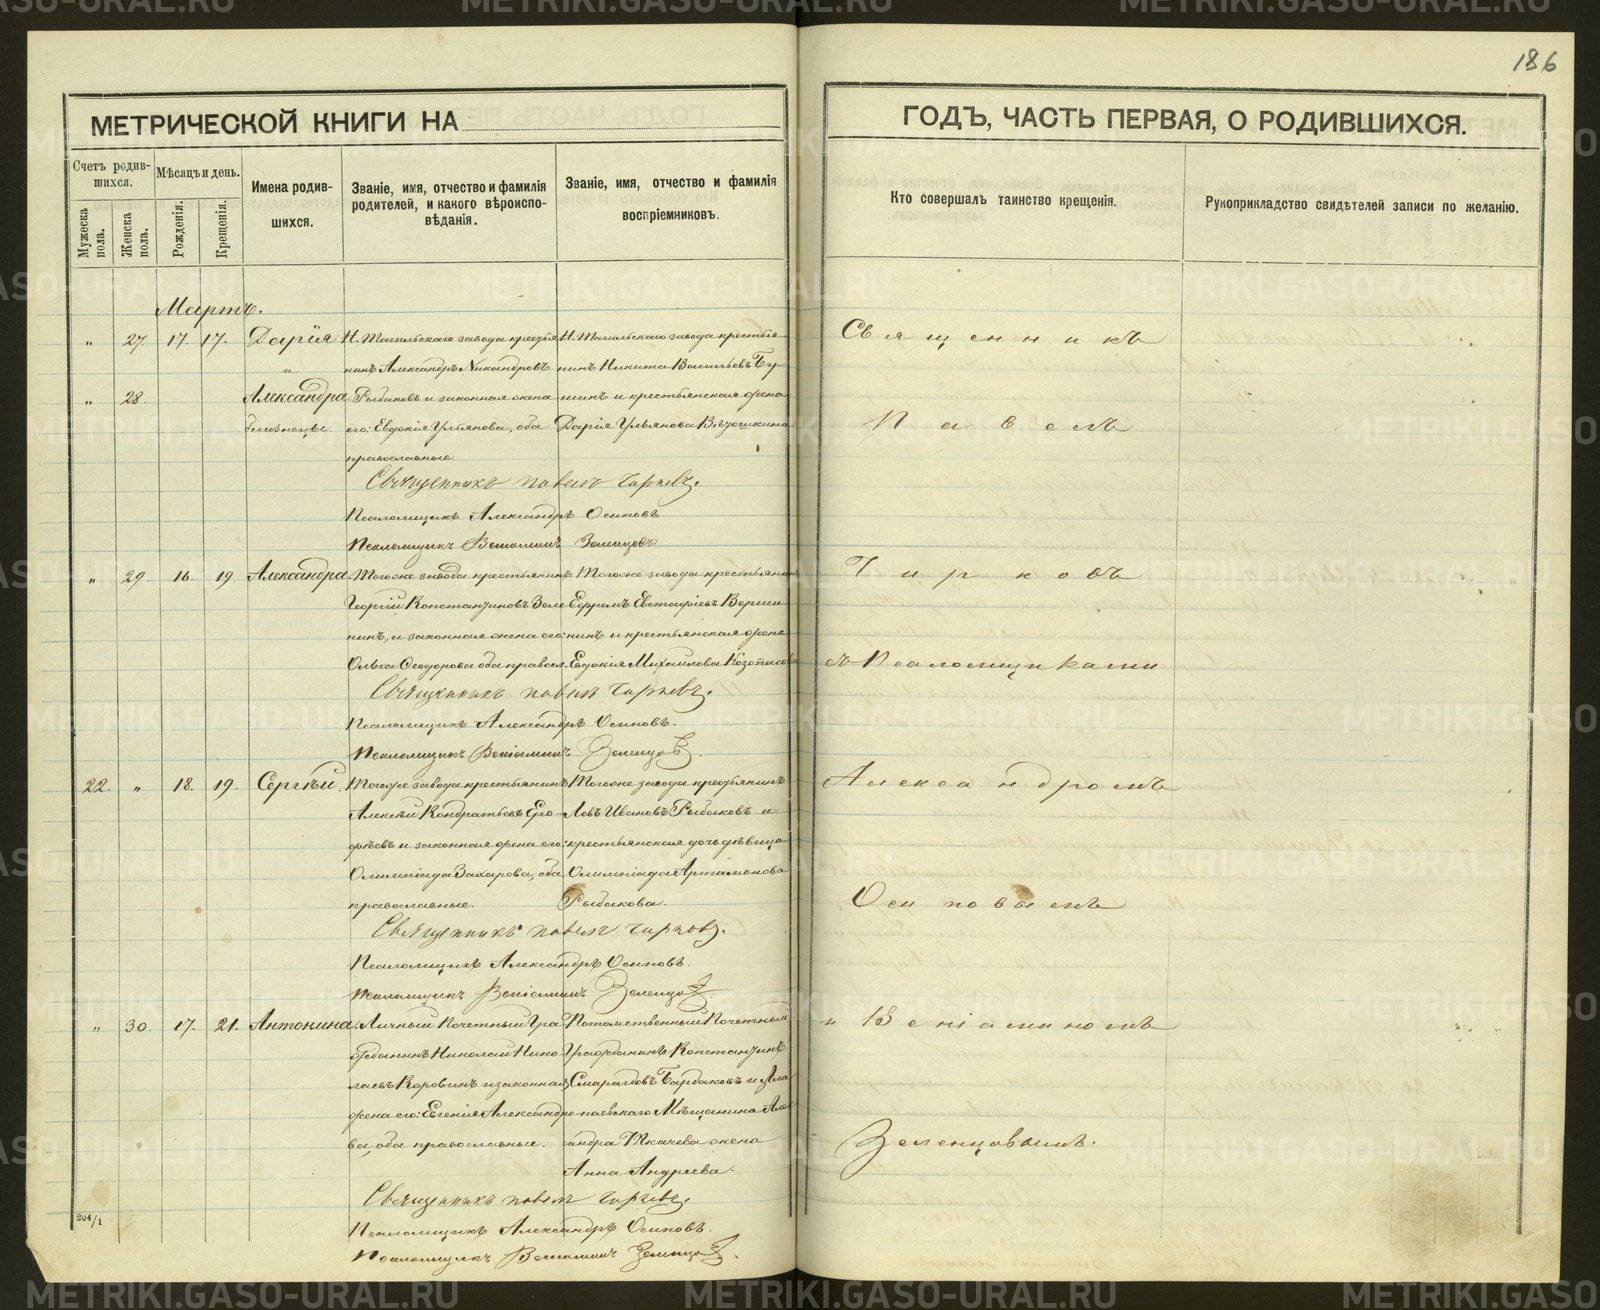 186
МЕТРИЧЕСКОЙ КНИГИ НА
ГОДЪ, ЧАСТЬ ПЕРВАЯ, О РОДИВШИХСЯ.
Счетъ родив-
шихся.
Мужеска пола.
Женска пола.
Мѣсяцъ и день.
Рожденія.
Крещенія.
Имена родив-
шихся.
Званіе, имя, отчество и фамилія
родителей, и какого вѣроиспо-
вѣданія.
Званіе, имя, отчество и фамилія
воспріемниковъ.
Кто совершалъ таинство крещенія.
Рукоприкладство свидѣтелей записи по желанію.
Мартъ.
" 27. 17. 17. Дарія
"
" 28. Александра
близнецы.
Н. Тагильскаго завода крестья
нинъ Александръ Никандровъ
Рыбаковъ и законная жена
его: Евдокія Ульянова, оба
православные.
Н. Тагильскаго завода крестья
нинъ Никита Васильевъ
и крестьянская жена
Дарія Ульянова
Священникъ Павелъ
Псаломщикъ Александръ Осиповъ
Псаломщикъ Веніаминъ Зеленцовъ
" 29. 16. 19. Александра
Тогоже завода крестьянинъ
Георгій Константиновъ Зеле
нинъ, и законная жена его:
Ольга Ѳеодорова оба правосл.
Тогоже завода крестьянинъ
Ефремъ Евстафіевъ Верши
нинъ и крестьянская жена
Евдокія Михайлова
Священникъ Павелъ
Псаломщикъ Александръ Осиповъ.
Псаломщикъ Веніаминъ Зеленцовъ.
22. " 18. 19. Сергѣй.
Тогоже завода крестьянинъ
Алексѣй Кондратьевъ Его
фѣевъ и законная жена его:
Олимпіада Захарова, оба
православные.
Тогоже завода крестьянинъ
Левъ Ивановъ Рыбаковъ и
крестьянская дочь дѣвица
Олимпіада Артамонова
Рыбакова.
Священникъ Павелъ
Псаломщикъ Александръ Осиповъ.
Псаломщикъ Веніаминъ Зеленцовъ
" 30. 17. 21. Антонина
Личный Почетный Гра
жданинъ Николай Нико
лаевъ Коровинъ и законная
жена его: Евгенія Александро
ва, оба православные.
Потомственный Почетный
Гражданинъ Константинъ
Смарагдовъ Бардаковъ и Ала
паевскаго Мѣщанина Алек
сандра Ткачева жена
Анна Андреева.
Священникъ Павелъ
Псаломщикъ Александръ Осиповъ.
Псаломщикъ Веніаминъ Зеленцовъ.
204/1
Священникъ
Павелъ
съ Псаломщиками
Александромъ
Осиповымъ
и Веніаминомъ
Зеленцовымъ.
METRIKI.GASO-URAL.RU